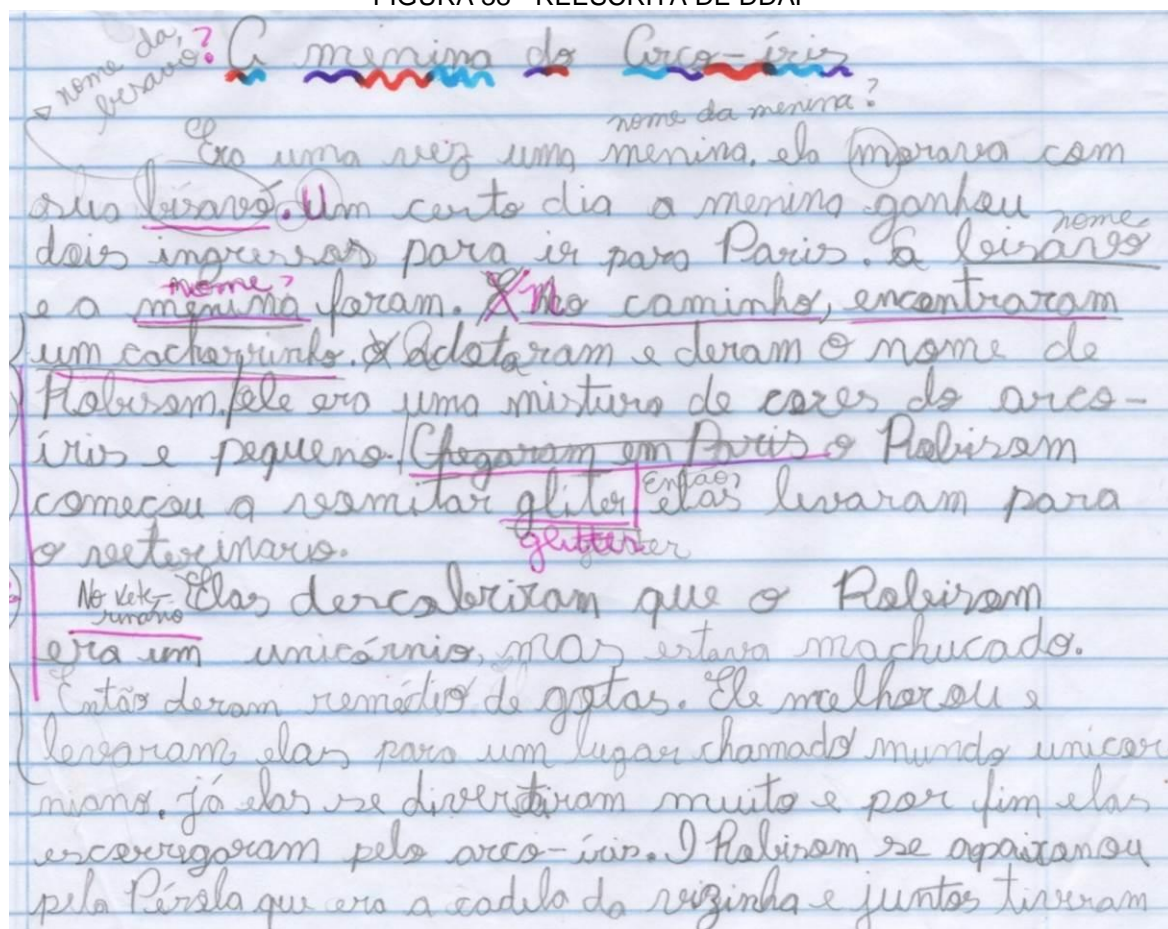 nome da bisavó? A menina do Arco-íris
nome da menina?
Era uma vez uma menina, ela morava com
sua bisavó. Um certo dia a menina ganhou
nome
dois ingressos para ir para Paris. A bisavó
nome?
e a menina foram. X No caminho, encontraram
um cachorrinho. X Adotaram e deram o nome de
Robisom, ele era uma mistura de cores do arco-
íris e pequeno. Chegaram em Paris o Robisom
começou a vomitar gliter Então elas levaram para
o veeterinario. glitter
No vete-
rinario Elas descobriram que o Robisom
era um unicórnio, mas estava machucado.
Então deram remédio de gotas. Ele melhorou e
levaram elas para um lugar chamado mundo unicor
niano. já elas se divertiram muito e por fim elas
escorregaram pelo arco-íris. O Robisom se apaixonou
pela Pérola que era a cadela da vizinha e juntos tiveram